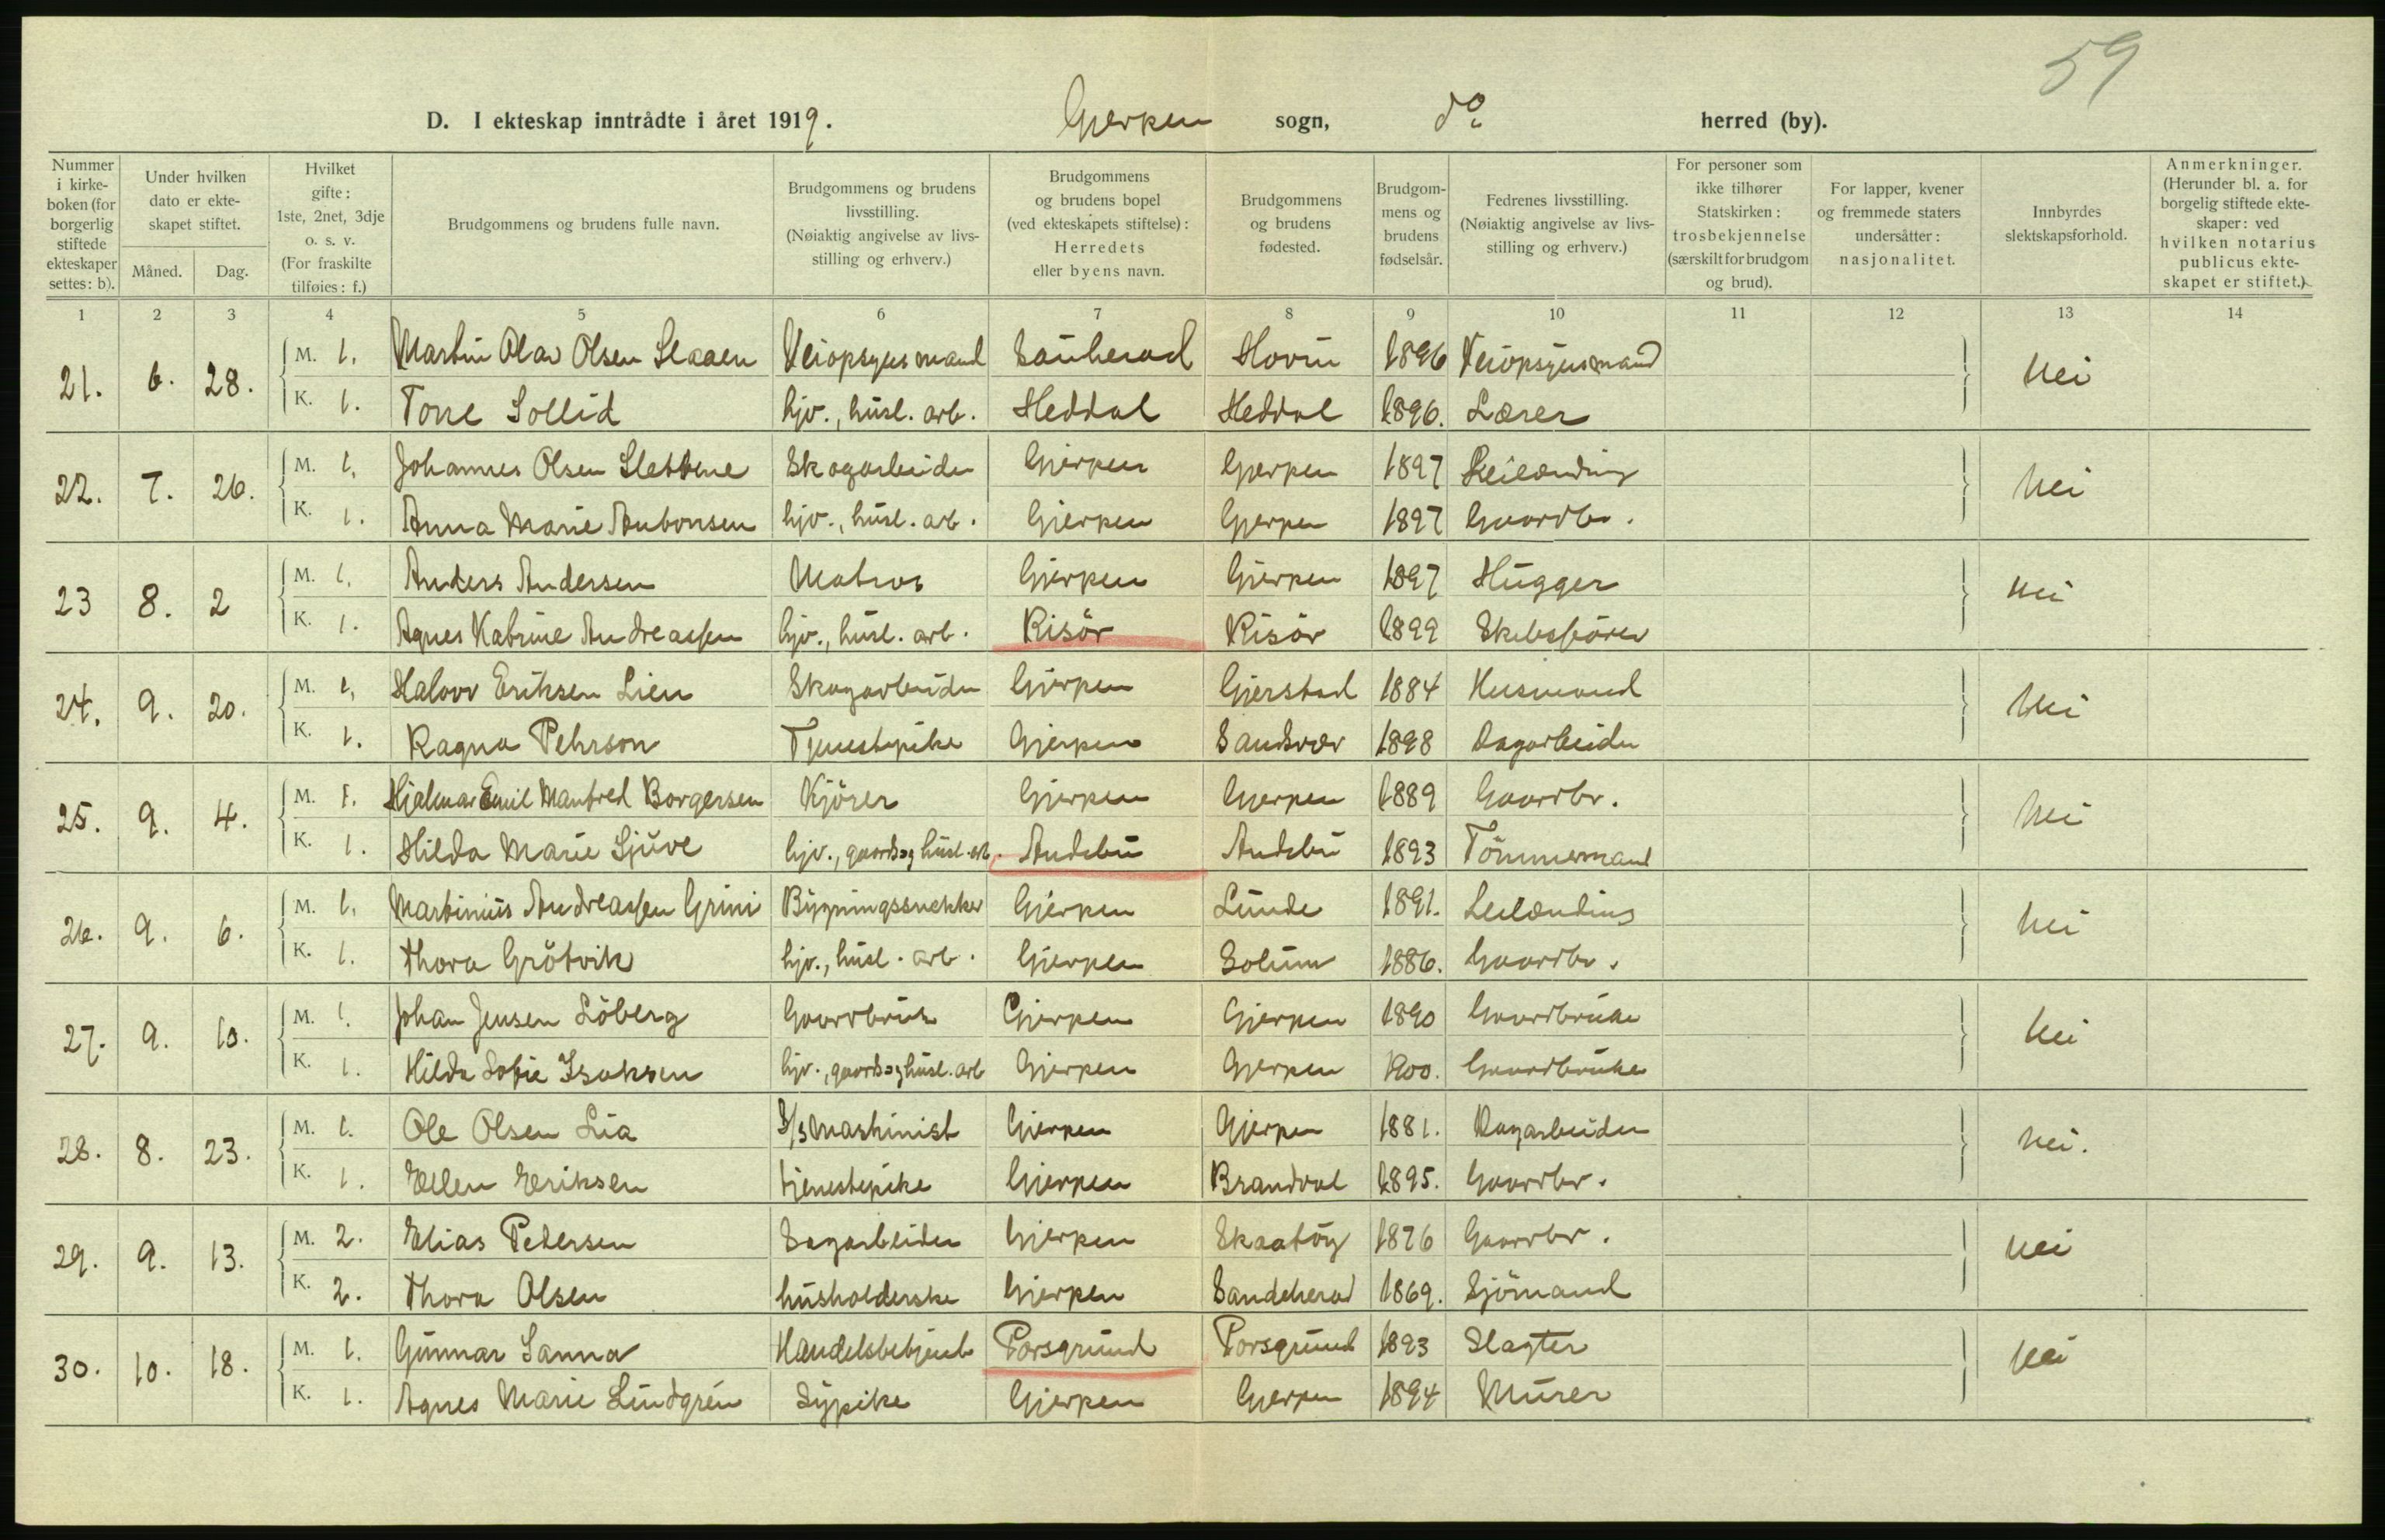 59
D. I ekteskap inntrådte i året 1919. Gjerpen sogn, do herred (by).
Nummer i kirkeboken (for borgerlig stiftede ekteskaper settes: b).
Under hvilken dato er ekteskapet stiftet.
Måned.
Dag.
Hvilket gifte: 1ste, 2net, 3dje o. s. v. (For fraskilte tilføies: f.)
Brudgommens og brudens fulle navn.
Brudgommens og brudens livsstilling. (Nøiaktig angivelse av livsstilling og erhverv.)
Brudgommens og brudens bopel (ved ekteskapets stiftelse): Herredets eller byens navn.
Brudgommens og brudens fødested.
Brudgommens og brudens fødselsår.
Fedrenes livsstilling. (Nøiaktig angivelse av livsstilling og erhverv.)
For personer som ikke tilhører Statskirken: trosbekjennelse (særskilt for brudgom og brud).
For lapper, kvener og fremmede staters undersåtter: nasjonalitet.
Innbyrdes slektskapsforhold.
Anmerkninger. (Herunder bl. a. for borgelig stiftede ekteskaper: ved hvilken notarius publicus ekteskapet er stiftet.)
1 2 3 4 5 6 7 8 9 10 11 12 13 14
21. 6. 28. M. 1. Martin Olav Olsen Slaaen Veiopsynsmand Sauherad Hovin 1896 Veiopsynsmand Nei
K. 1. Tone Sollid hjv., husl. arb. Heddal Heddal 1896. Lærer
22. 7. 26. M. 1. Johannes Olsen Slettene Skogarbeider Gjerpen Gjerpen 1897 Leilænding Nei
K. 1. Anna Marie Anbonsen hjv., husl. arb. Gjerpen Gjerpen 1897 Gaardbr.
23 8. 2 M. 1. Anders Andersen Matros Gjerpen Gjerpen 1897 Hugger Nei
K. 1. Agnes Katrine Andreassen hjv., husl. arb. Risör Risör 1899 Skibsförer
24. 9. 20. M. 1. Halvor Eriksen Lien Skogarbeider Gjerpen Gjerstad 1884 Husmand Nei
K. 1. Ragna Pehrson Tjenestepike Gjerpen Sandsvær 1898 Dagarbeider
25. 9. 4. M. 1. Hjalmar Emil Manfred Borgersen Kjörer Gjerpen Gjerpen 1889 Gaardbr. Nei
K. 1. Hilda Marie Sjuve hjv., gaards og husl. arb. Andebu Andebu 1893 Tömmermand
26. 9. 6. M. 1. Martinius Andreassen Grini Bygningssnekker Gjerpen Lunde 1891. Leilænding Nei
K. 1. Thora Grötvik hjv., husl. arb. Gjerpen Solum 1886. Gaardbr.
27. 9. 10. M. 1. Johan Jensen Löberg Gaardbruk. Gjerpen Gjerpen 1890 Gaardbruker Nei
K. 1. Hilda Sofie Isaksen hjv., gaards og husl. arb Gjerpen Gjerpen 1900. Gaardbruker
28. 8. 23. M. 1. Ole Olsen Lia S/S Maskinist Gjerpen Gjerpen 1881. Dagarbeider Nei.
K. 1. Ellen Eriksen tjenestepike Gjerpen Brandval 1895. Gaardbr.
29. 9. 13. M. 2. Elias Petersen Sagarbeider Gjerpen Skaatöy 1876 Gaardbr. Nei
K. 2. Thora Olsen husholderske Gjerpen Sandeherad 1869. Sjömand
30. 10. 18. M. 1. Gunnar Sanna Handelsbetjent Porsgrund Porsgrund 1893 Slagter Nei
K. 1. Agnes Marie Lundgrén Sypike Gjerpen Gjerpen 1894 Murer